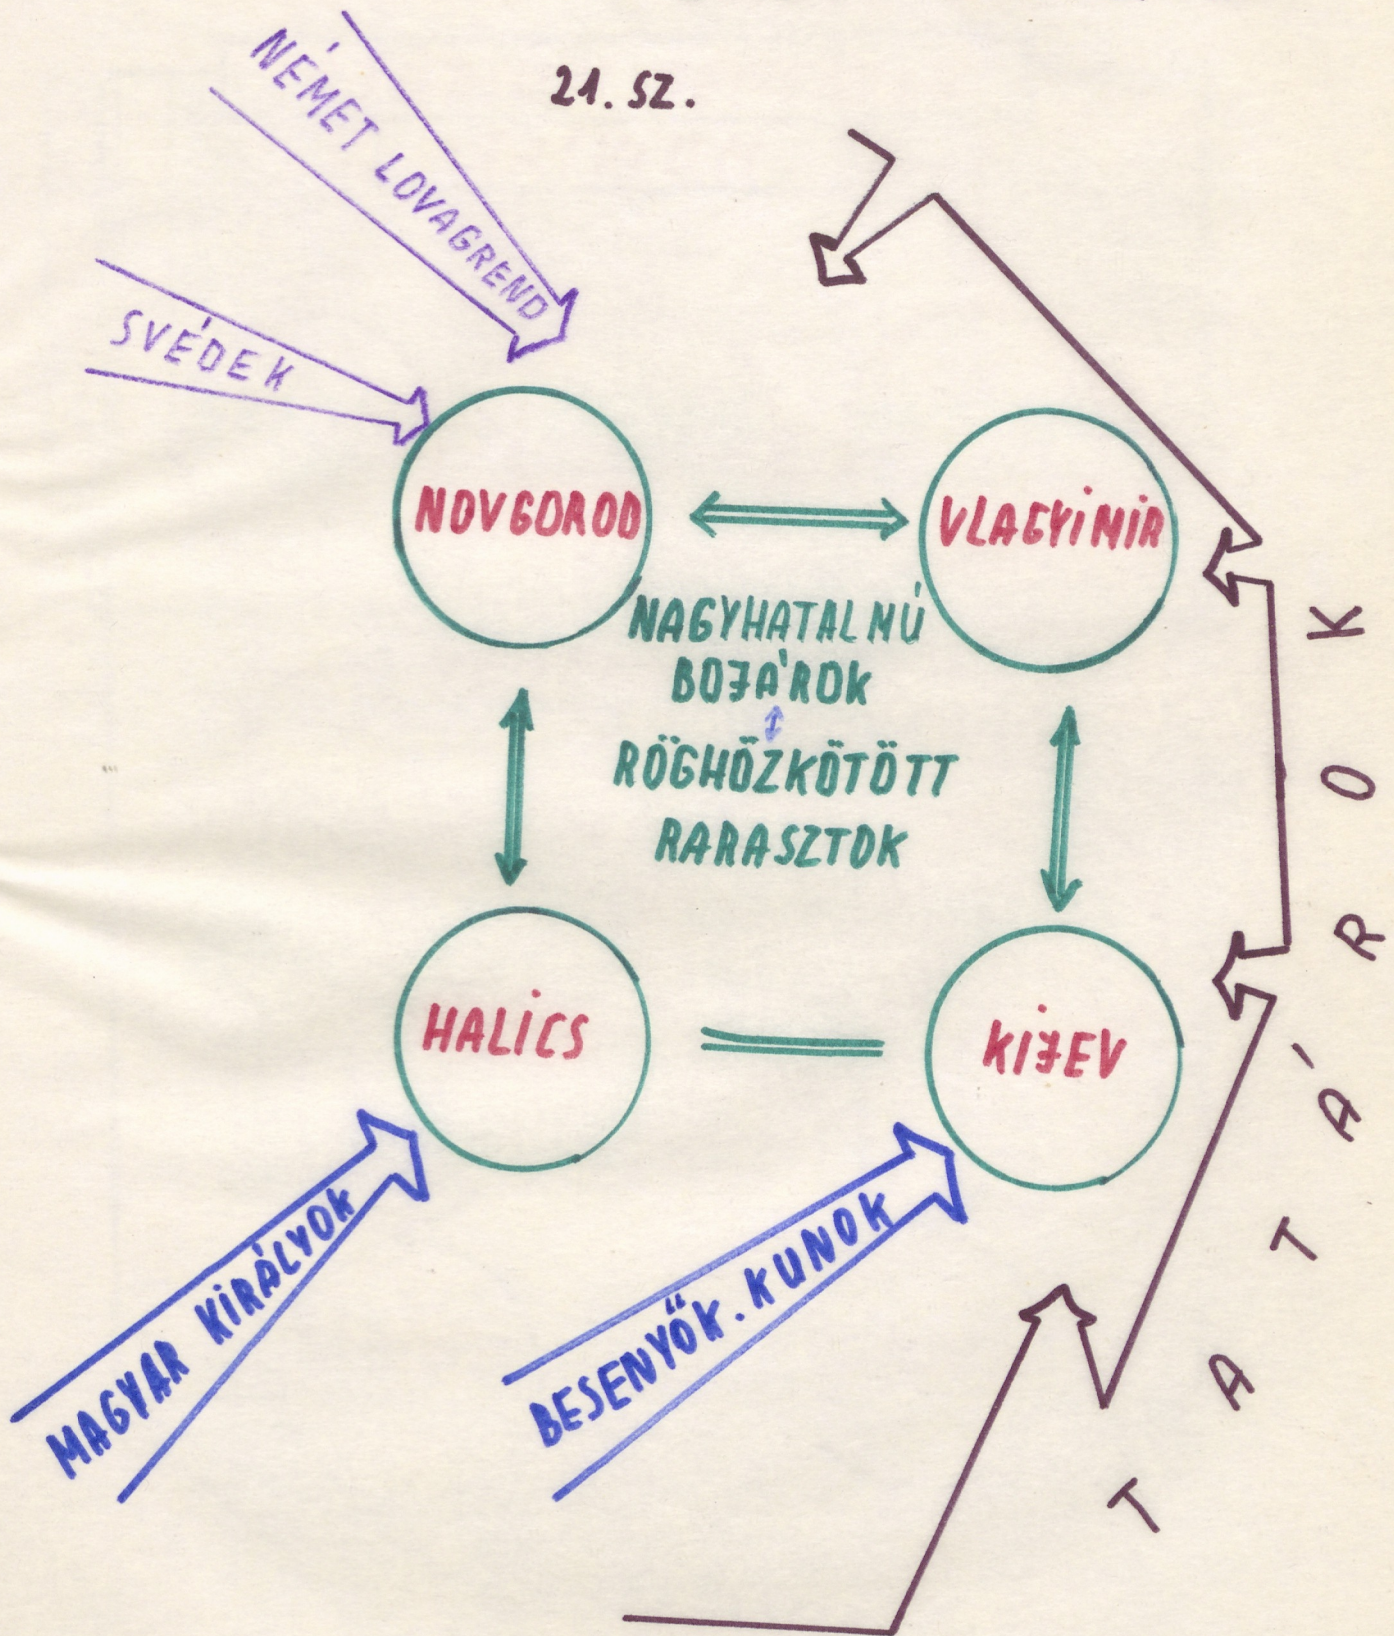 21. SZ.
NÉMET LOVAGREND
SVÉDEK
NOVGOROD
VLAGYIMIR
NAGYHATALMÚ
BOJÁROK
RÖGHÖZKÖTÖTT
RARASZTOK
HALICS
KIJEV
MAGYAR KIRÁLYOK
BESENYŐK. KUNOK
TATÁROK